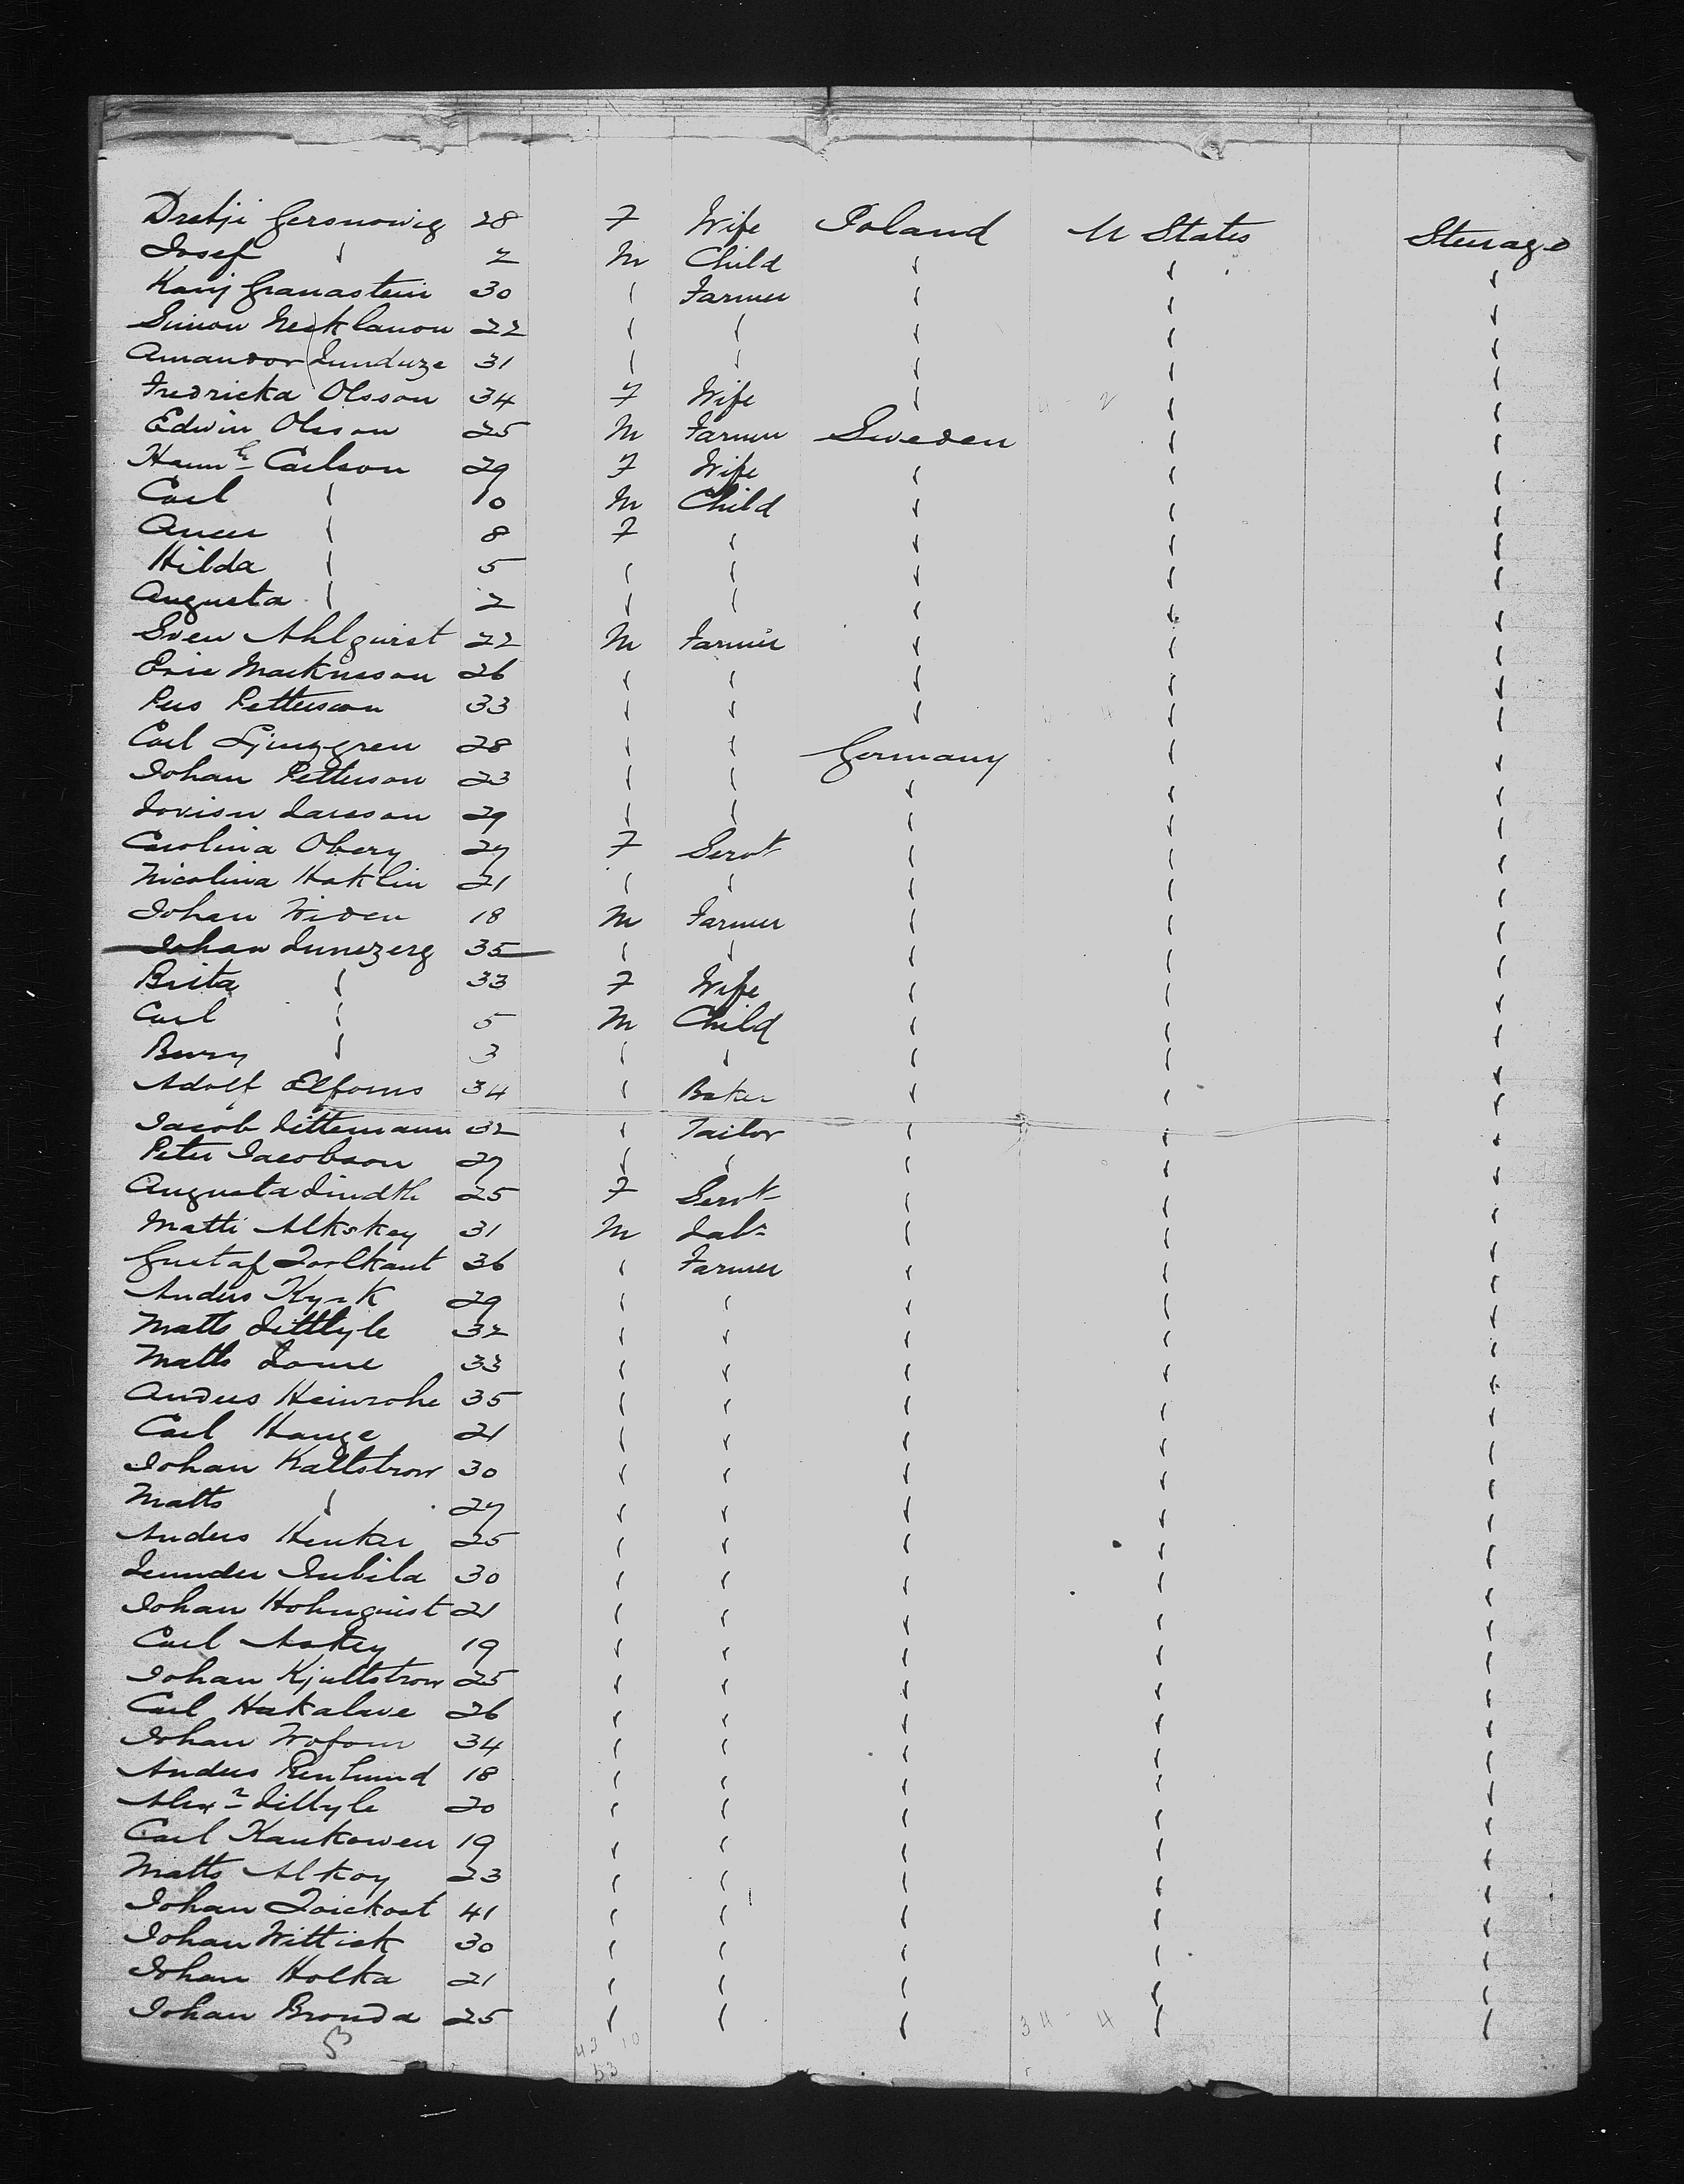 Dretji Gersnowig 28 F Wife Poland U States Steerage
Josef " 2 M Child " " "
Kavij Granastein 30 " Farmer " " "
Simon Necklanon 22 " " " " "
Amandor Lunduze 31 " " " " "
Fredricka Olsson 34 F Wife " " "
Edwin Olsson 25 M Farmer Sweden " "
Hann^h Carlson 29 F Wife " " "
Carl " 10 M Child " " "
" 8 F " " " "
Hilda " 5 " " " " "
Augusta " 2 " " " " "
Sven Ahlquist 22 M Farmer " " "
Eric Marknsson 26 " " " " "
Pers Petterson 33 " " " " "
Carl Ljunggren 28 " " Germany " "
Johan Petterson 23 " " " " "
Lovisn Larsson 29 " " " " "
Carolina Obery 27 F Servt " " "
Nicolina Hoklin 21 " " " " "
Johan Widen 18 M Farmer " " "
Johan Lunezerg 35 " " " " "
Brita " 33 F Wife " " "
Carl " 5 M Child " " "
" 3 " " " " "
Adolf Elfoms 34 " Baker " " "
Jacob Littemann 32 " Tailor " " "
Peter Jacobson 27 " " " " "
Augusta Lindth 25 F Servt " " "
Matti Alkskey 31 M Labr " " "
Gustaf Torlkant 36 " Farmer " " "
Anders Kyrk 29 " " " " "
Matts Littlyle 32 " " " " "
Matts Lome 33 " " " " "
Anders Heinrohe 35 " " " " "
Carl Hauge 21 " " " " "
Johan Kallstrom 30 " " " " "
Matts " 27 " " " " "
Anders Henker 25 " " " " "
Lennder Jubila 30 " " " " "
Johan Hohnquist 21 " " " " "
Carl Askey 19 " " " " "
Johan Kjullstrom 25 " " " " "
Carl Hakalave 26 " " " " "
Johan Wofom 34 " " " " "
Anders Renlund 18 " " " " "
Alexr Lillyle 20 " " " " "
Carl Kaukowen 19 " " " " "
Matts Alkoy 23 " " " " "
Johan Toickost 41 " " " " "
Johan Wittick 30 " " " " "
Johan Holka 21 " " " " "
Johan Bronda 25 " " " " "
53